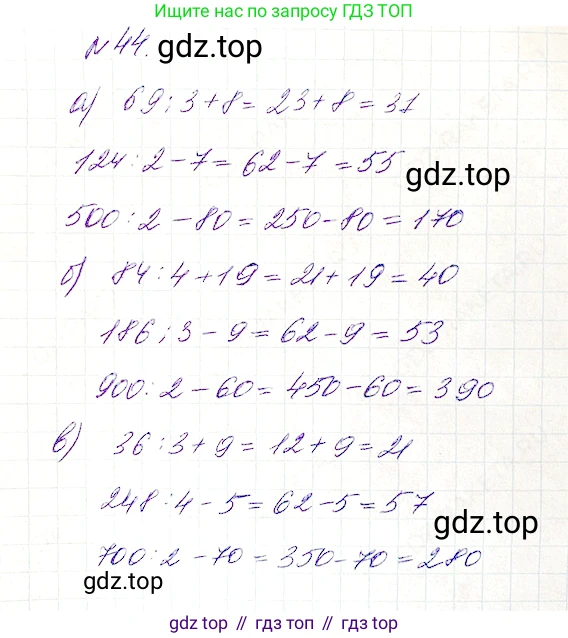 Ищите нас по запросу ГДЗ ТОП
№ 44. gdz.top
а) 69 : 3 + 8 = 23 + 8 = 31
124 : 2 - 7 = 62 - 7 = 55
gdz.top
500 : 2 - 80 = 250 - 80 = 170
б) 84 : 4 + 19 = 21 + 19 = 40
186 : 3 - 9 = 62 - 9 = 53
900 : 2 - 60 = 450 - 60 = 390
в) 36 : 3 + 9 = 12 + 9 = 21
248 : 4 - 5 = 62 - 5 = 57
gdz.top
700 : 2 - 70 = 350 - 70 = 280
gdz.top
gdz top // гдз топ // гдз.топ